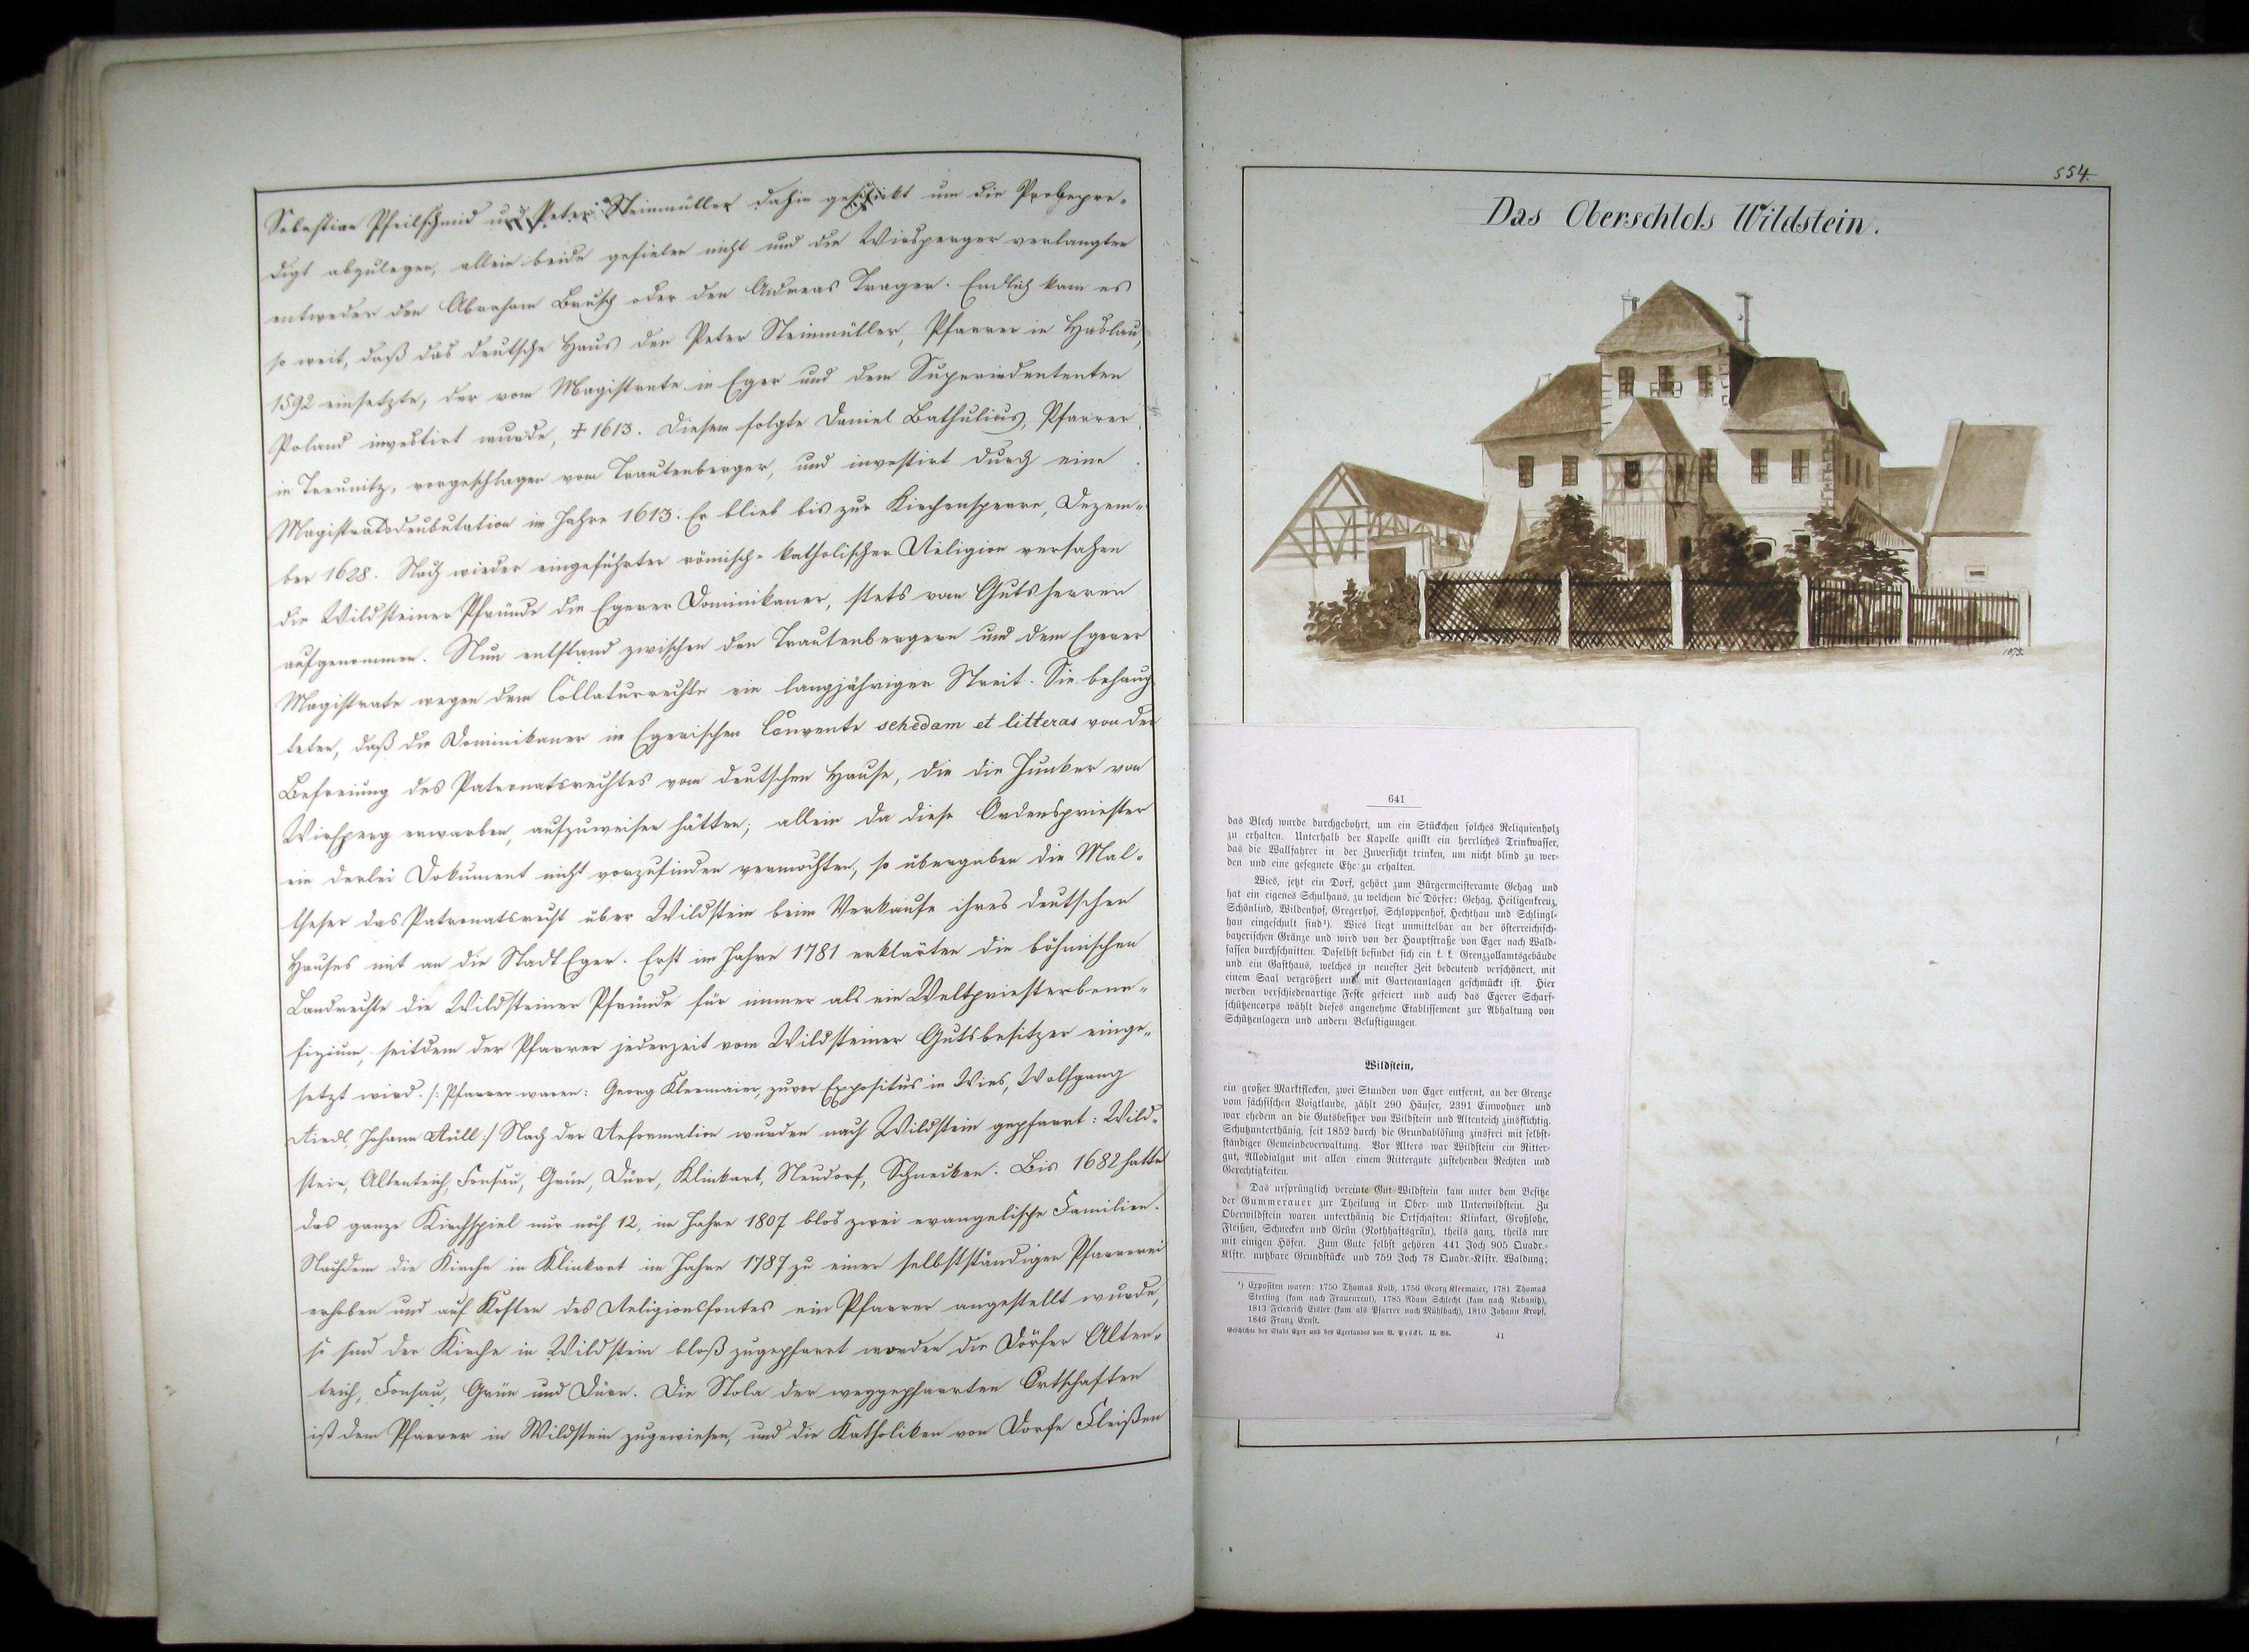 Sebastian Pfeilschmid und Peter Steinmüller dahin geschickt um die Probepre-
digt abzulegen, allein beide gefielen nicht und die Wirsperger verlangten
entweder den Abraham Brusch oder den Andreas Trager. Endlich kam es
so weit, daß das deutsche Haus den Peter Steinmüller, Pfarrer in Haslau,
1592 einsetzte, der vom Magistrate in Eger und dem Superindententen
Poland investirt wurde, † 1613. Diesem folgte Daniel Bathulius, Pfarrer
in Treunitz, vorgeschlagen vom Trautenberger, und investirt durch eine
Magistratsdeubutation im Jahre 1613. Er blieb bis zur Kirchensperre, Dezem-
ber 1628. Nach wieder eingeführter römisch-katholischer Religion versahen
die Wildsteiner Pfründe die Egerer Dominikaner, stets vom Gutsherren
aufgenommen. Nun entstand zwischen den Trautenbergern und dem Egerer
Magistrate wegen dem Collaturrechte ein langjähriger Streit. Sie behaup-
teten, daß die Dominikaner im Egerischen Convente schedam et litteras von der
Befreiung des Patronatsrechtes vom deutschen Hause, die die Junker von
Wirsperg erwarben, aufzuweisen hätten; allein da diese Ordenspriester
ein derlei Dokument nicht vorzufinden vermochten, so übergaben die Mal-
theser das Patronatsrecht über Wildstein beim Verkaufe ihres deutschen
Hauses mit an die Stadt Eger. Erst im Jahre 1781 erklärten die böhmischen
Landrechte die Wildsteiner Pfründe für immer als ein Weltpriesterbene-
fizium, seitdem der Pfarrer jederzeit vom Wildsteiner Gutsbesitzer einge-
setzt wird. /: Pfarrer waren: Georg Kleemaier, zuvor Expositus in Wies, Wolfgang
Riedl, Johann Rüll :/ Nach der Reformation wurden nach Wildstein gepfarrt: Wild-
stein, Altenteich, Fonsau, Grün, Dürr, Klinkart, Neudorf, Schnecken. Bis 1682 hatte
das ganze Kirchspiel nur noch 12, im Jahre 1807 blos zwei evangelische Familien.
Nachdem die Kirche in Klinkart im Jahre 1787 zu einer selbstständigen Pfarrerei
erhoben und auf Kosten des Religionsfontes ein Pfarrer angestellt wurde,
so sind der Kirche in Wildstein bloß zugepfarrt worden die Dörfer Alten-
teich, Fonsau, Grün und Dürr. Die Stola der weggepfarrten Ortschaften
ist dem Pfarrer in Wildstein zugewiesen, und die Katholiken von Dorfe Fleißen
554.
Das Oberschloß Wildstein.
1873.
641
das Blech wurde durchgebohrt, um ein Stückchen solches Reliquienholz
zu erhalten. Unterhalb der Kapelle quillt ein herrliches Trinkwasser,
das die Wallfahrer in der Zuversicht trinken, um nicht blind zu wer-
den und eine gesegnete Ehe zu erhalten.
Wies, jetzt ein Dorf, gehört zum Bürgermeisteramte Gehag und
hat ein eigenes Schulhaus, zu welchem die Dörfer: Gehag, Heiligenkreuz,
Schönlind, Wildenhof, Gregerhof, Schloppenhof, Hechthau und Schlingl-
hau eingeschult sind¹). Wies liegt unmittelbar an der österreichisch-
bayerischen Gränze und wird von der Hauptstraße von Eger nach Wald-
sassen durchschnitten. Daselbst befindet sich ein k. k. Grenzzollamtsgebäude
und ein Gasthaus, welches in neuester Zeit bedeutend verschönert, mit
einem Saal vergrößert und mit Gartenanlagen geschmückt ist. Hier
werden verschiedenartige Feste gefeiert und auch das Egerer Scharf-
schützencorps wählt dieses angenehme Etablissement zur Abhaltung von
Schützenlagern und andern Belustigungen.
Wildstein,
ein großer Marktflecken, zwei Stunden von Eger entfernt, an der Grenze
vom sächsischen Voigtlande, zählt 290 Häuser, 2391 Einwohner und
war ehedem an die Gutsbesitzer von Wildstein und Altenteich zinsflichtig.
Schutzunterthänig, seit 1852 durch die Grundablösung zinsfrei mit selbst-
ständiger Gemeindeverwaltung. Vor Alters war Wildstein ein Ritter-
gut, Allodialgut mit allen einem Rittergute zustehenden Rechten und
Gerechtigkeiten.
Das ursprünglich vereinte Gut Wildstein kam unter dem Besitze
der Gummerauer zur Theilung in Ober- und Unterwildstein. Zu
Oberwildstein waren unterthänig die Ortschaften: Klinkart, Großlohe,
Fleißen, Schnecken und Grün (Rothhaftsgrün), theils ganz, theils nur
mit einigen Höfen. Zum Gute selbst gehören 441 Joch 905 Quadr.-
Klftr. nutzbare Grundstücke und 759 Joch 78 Quadr.-Klftr. Waldung;
¹) Expositen waren: 1750 Thomas Kolb, 1756 Georg Kleemaier, 1781 Thomas
Sterling (kam nach Frauenreut), 1785 Adam Schlecht (kam nach Nebanitz),
1813 Friedrich Eisler (kam als Pfarrer nach Mühlbach), 1810 Johann Kropf,
1846 Franz Ernst.
Geschichte der Stadt Eger und des Egerlandes von B. Pröckl. II. Bd. 41